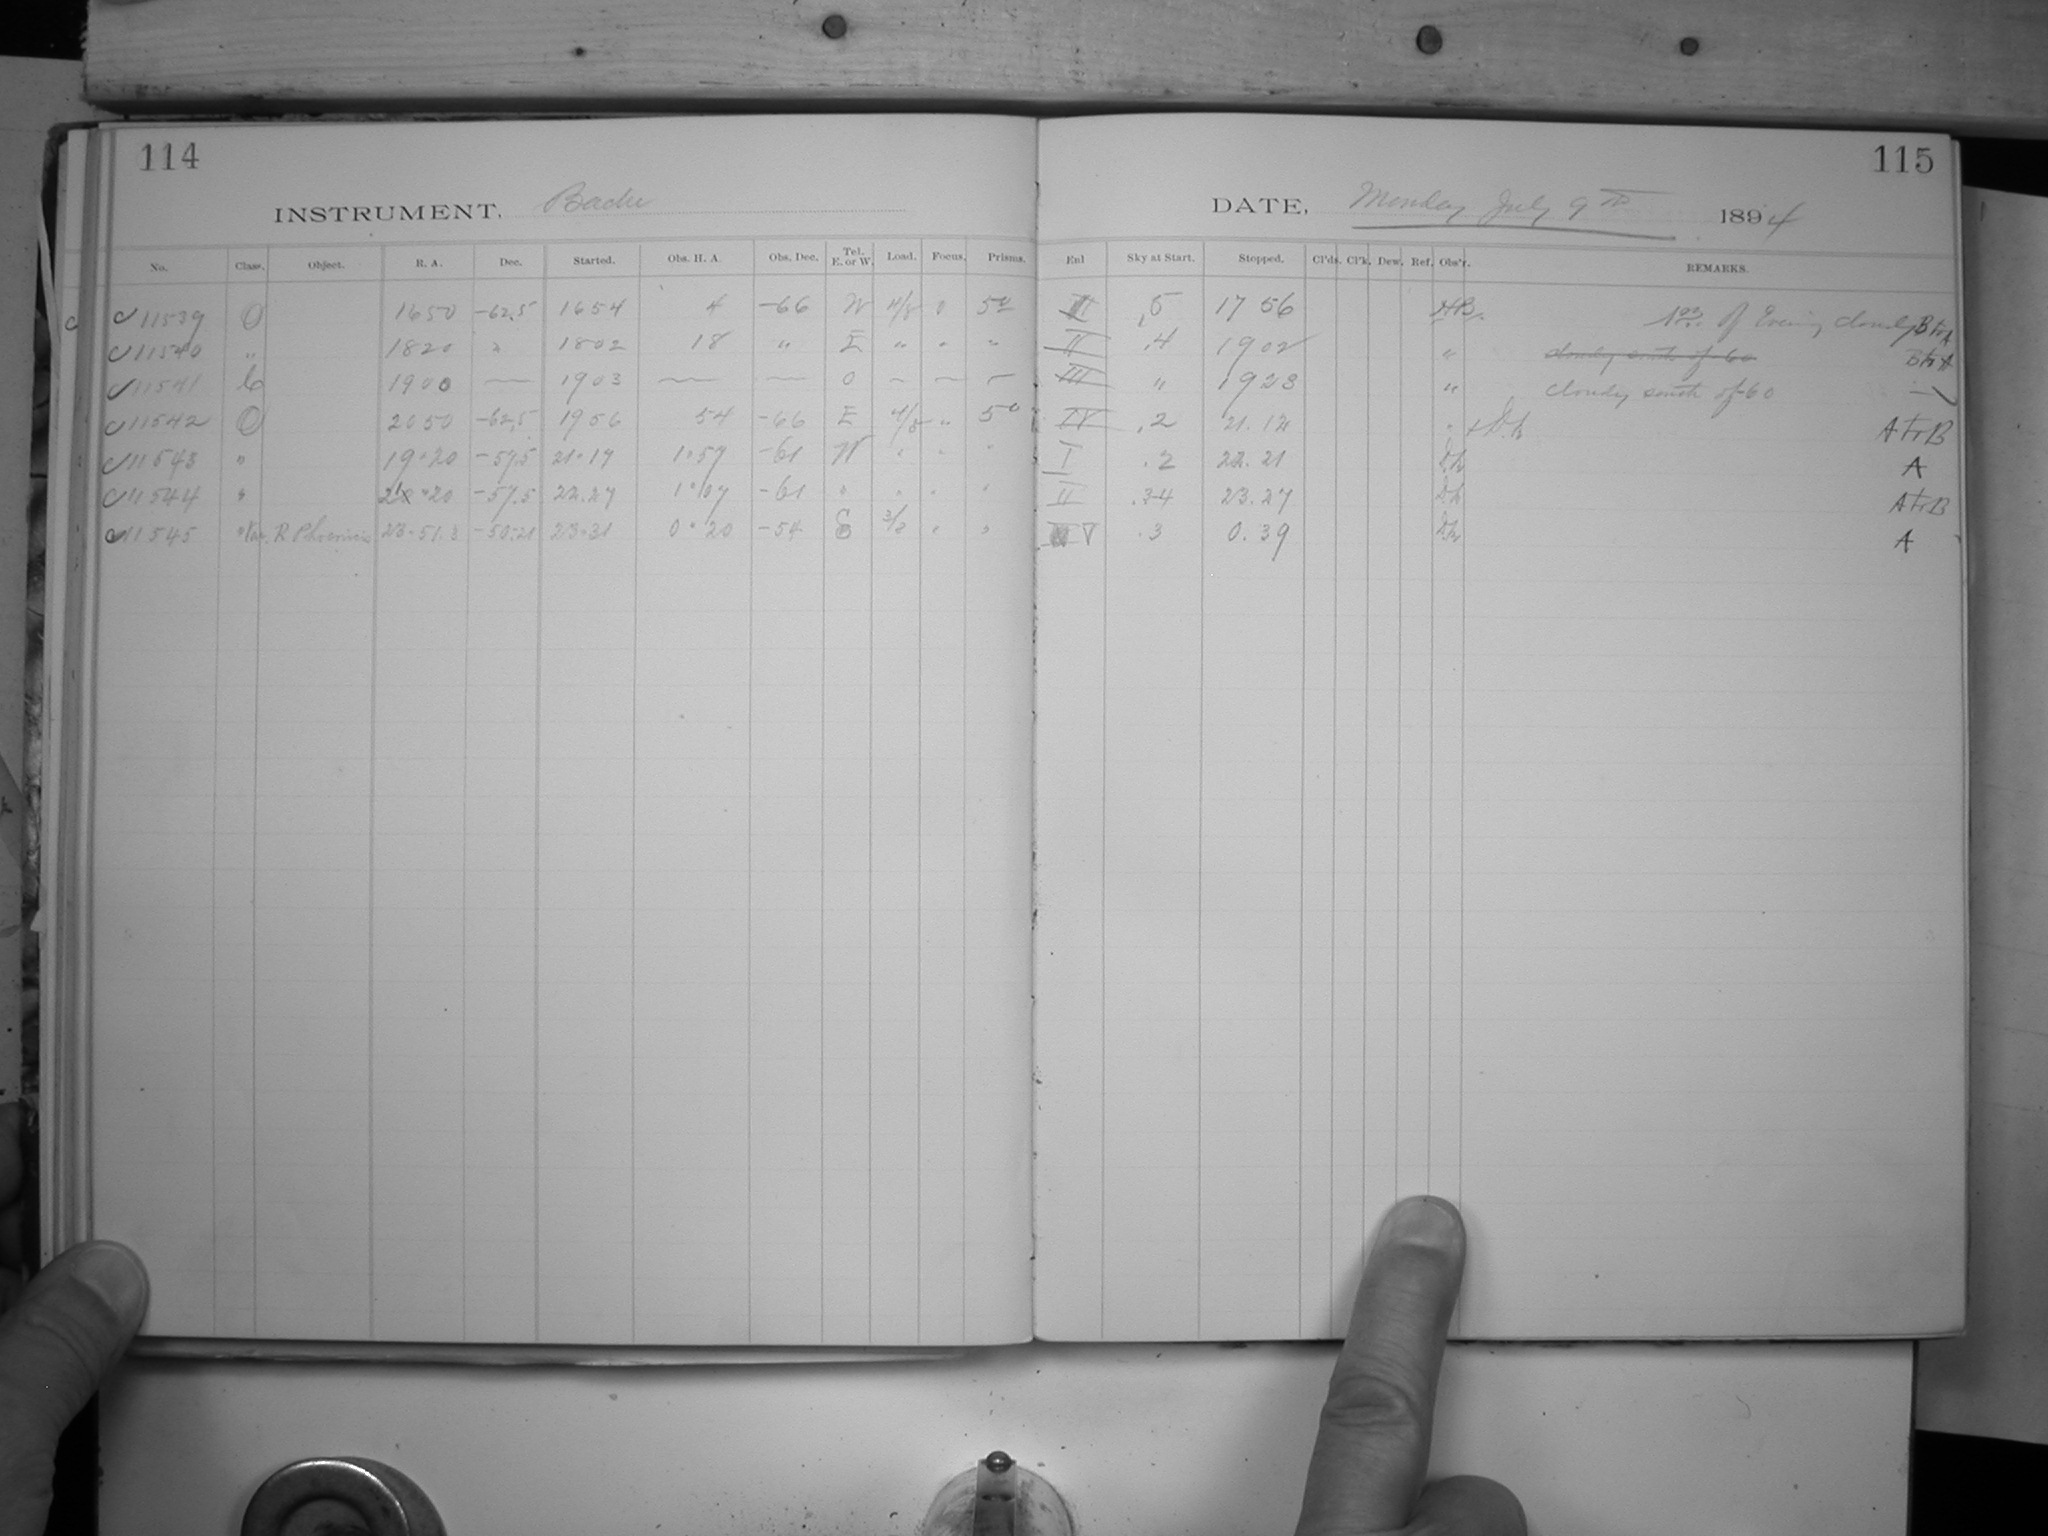 114
INSTRUMENT, Bache
No. Class. Object. R. A. Dec. Started. Obs. H. A. Obs. Dec. Tel. E. or W. Load. Focus. Prisms.
11539 O 1650 -62.5 1654 4 -66 W 4/8 0 5"
11540 " 1820 " 1802 18 " E " " "
11541 C 1900 — 1903 — — 0 — — —
11542 O 2050 -62.5 1956 54 -66 E 4/8 " 5"
11543 " 19°20 -57.5 21.17 1°57 -61 W " " "
11544 " -57.5 22.27 1°07 -61 " " " "
11545 R Phoenicis 23.51.3 -50.21 23.31 0°20 -54 E 3/2 " "
115
DATE, Monday July 9th 1894
Enl Sky at Start. Stopped. Cl'ds. Cl'k. Dew. Ref. Obs'r. REMARKS.
III .5 1756 HB. of Evening cloudy B Fr A
II .4 1902 " cloudy south of 60 B Fr A
III " 1923 " cloudy south of -60 —
IV .2 21.12 " A Fr B
I .2 22.21 A
II .34 23.27 A Fr B
V .3 0.39 A